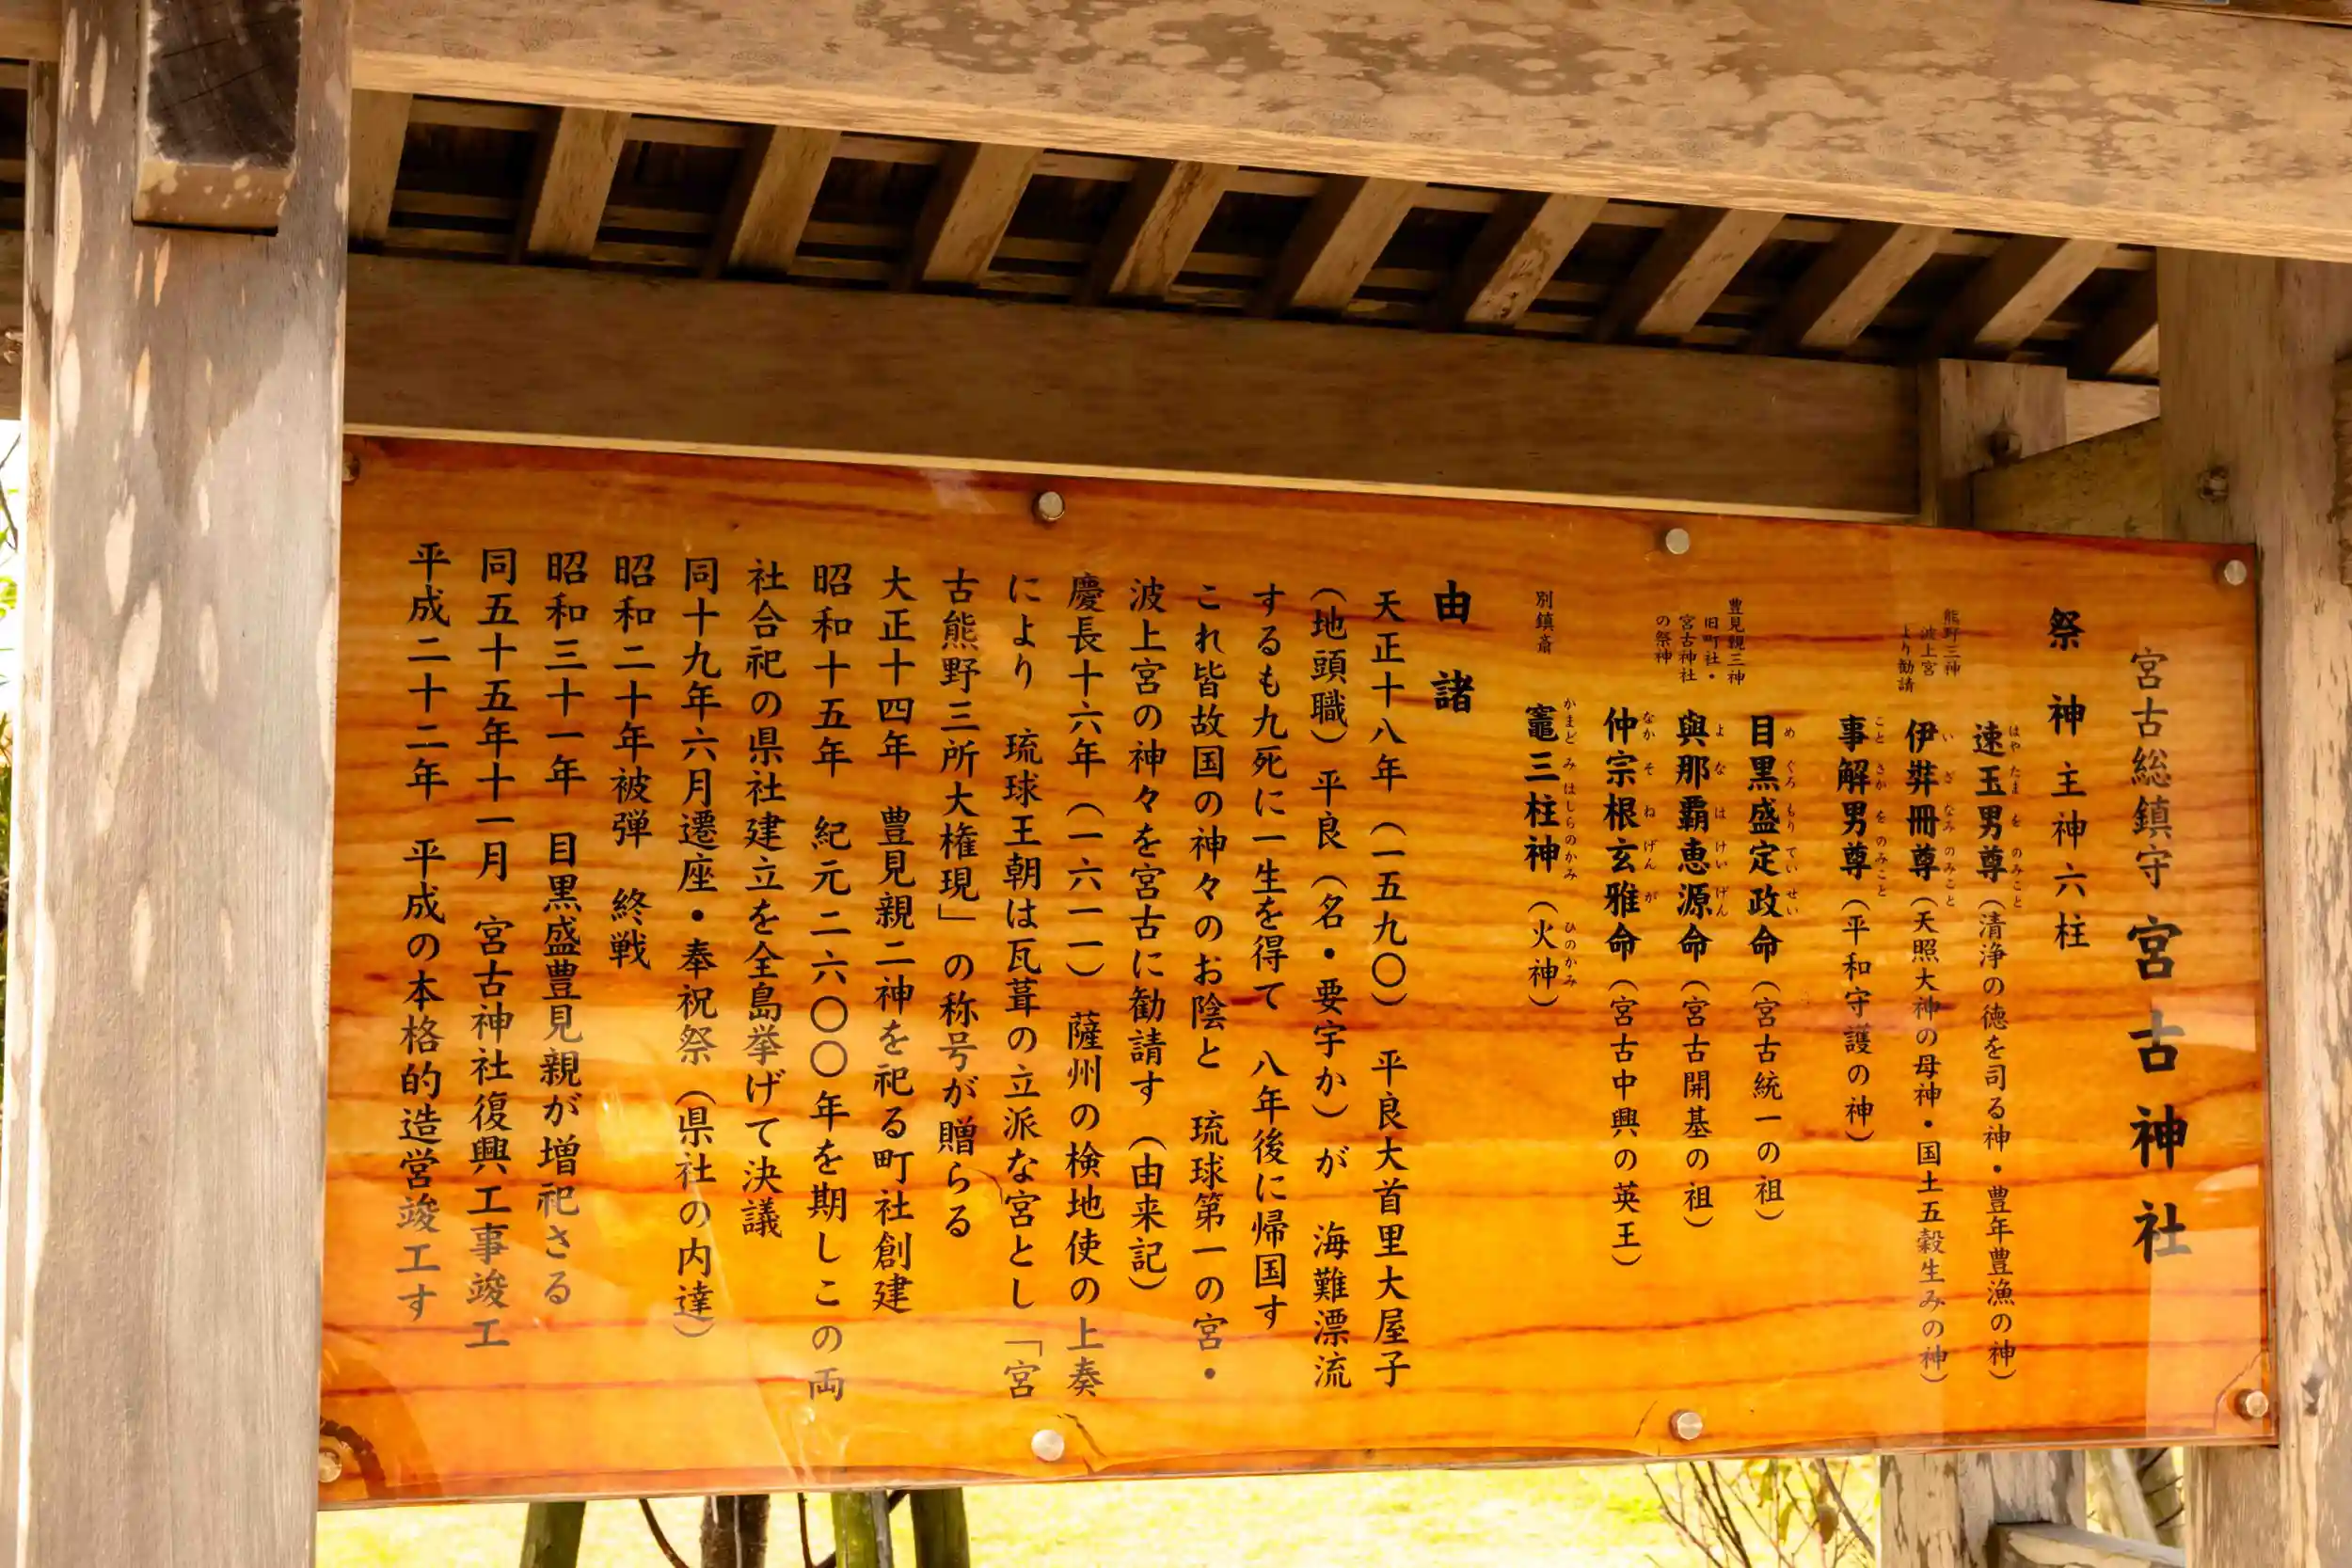 宮古総鎮守 宮古神社
祭神 主神六柱
熊野三神
波上宮
より勧請
速玉男尊（清浄の徳を司る神・豊年豊漁の神）
はやたまをのみこと
伊弉冊尊（天照大神の母神・国土五穀生みの神）
いざなみのみこと
事解男尊（平和守護の神）
ことさかをのみこと
豊見親三神
旧町社・
宮古神社
の祭神
目黒盛定政命（宮古統一の祖）
めぐろもりていせい
與那覇恵源命（宮古開基の祖）
よなはけいげん
仲宗根玄雅命（宮古中興の英王）
なかそねげんが
別鎮斎
竈三柱神（火神）
かまどみはしらのかみ ひのかみ
由諸
天正十八年（一五九〇） 平良大首里大屋子
（地頭職）平良（名・要宇か）が 海難漂流
するも九死に一生を得て 八年後に帰国す
これ皆故国の神々のお陰と 琉球第一の宮・
波上宮の神々を宮古に勧請す（由来記）
慶長十六年（一六一一） 薩州の検地使の上奏
により 琉球王朝は瓦葺の立派な宮とし「宮
古熊野三所大権現」の称号が贈らる
大正十四年 豊見親二神を祀る町社創建
昭和十五年 紀元二六〇〇年を期しこの両
社合祀の県社建立を全島挙げて決議
同十九年六月遷座・奉祝祭（県社の内達）
昭和二十年被弾 終戦
昭和三十一年 目黒盛豊見親が増祀さる
同五十五年十一月 宮古神社復興工事竣工
平成二十二年 平成の本格的造営竣工す